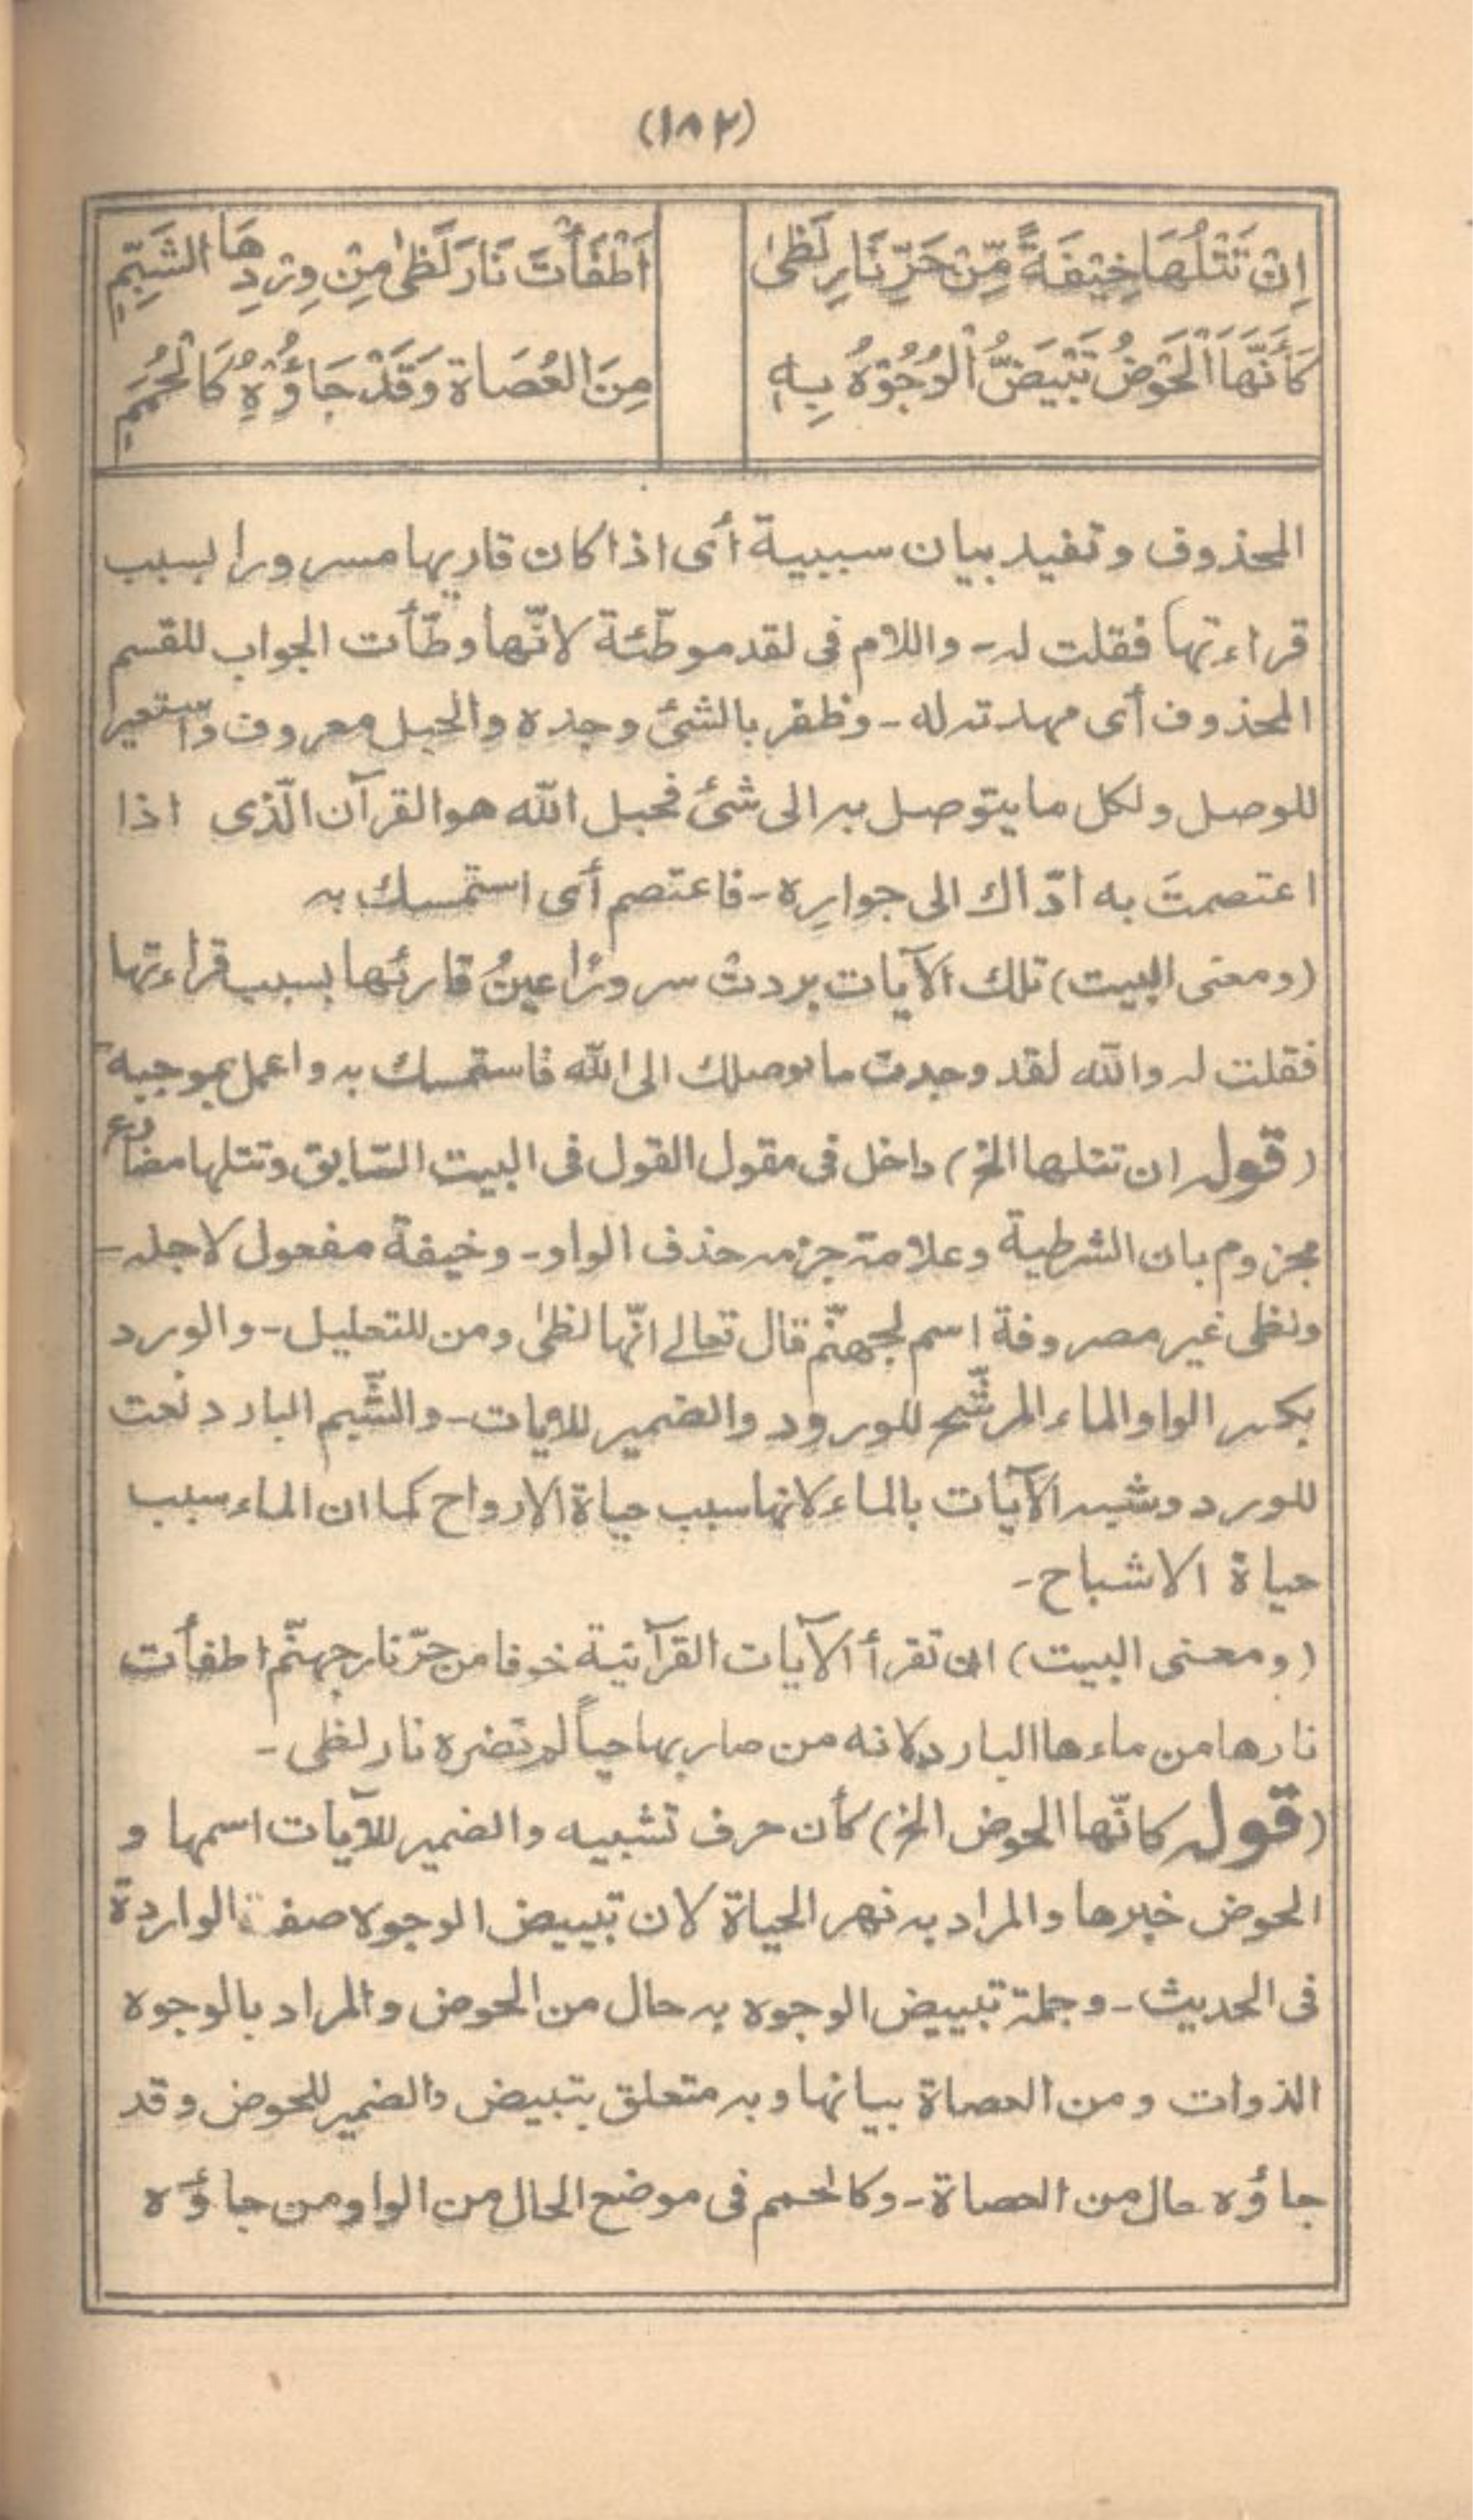 (١٨٢)
اِنْ تَتْلُهَا خِيْفَةً مِّنْ حَرِّ نَارِ لَظٰى اَطْفَأْتَ نَارَ لَظٰى مِنْ وِرْدِهَا الشَّبِمِ
كَأَنَّهَا الْحَوْضُ تَبْيَضُّ الْوُجُوْهُ بِهٖ مِنَ الْعُصَاةِ وَقَدْ جَاؤُوْهُ كَالْحُمَمِ
المحذوف وتفيد بيان سببية أى اذا كان قاريها مسرورا بسبب
قراءتها فقلت له - واللام فى لقد موطّئة لانّها وطّأت الجواب للقسم
المحذوف أى مهدته له - وظفر بالشئ وجده والحبل معروف واستعير
للوصل ولكل ما يتوصل به الى شئ فحبل الله هو القرآن الّذى اذا
اعتصمتَ به ادّاك الى جواره - فاعتصم أى استمسك به
(ومعنى البيت) تلك الآيات بردت سرورًا عينُ قارئها بسبب قراءتها
فقلت له والله لقد وجدت ما يوصلك الى الله فاستمسك به واعمل بموجبه -
(قوله ان تتلها الخ) داخل فى مقول القول فى البيت السّابق وتتلها مضارع
مجزوم بان الشرطية وعلامة جزمه حذف الواو - وخيفة مفعول لاجله -
ولظى غير مصروفة اسم لجهنّم قال تعالى انّها لظىٰ ومن للتعليل - والورد
بكسر الواو الماء المرشّح للورود والضمير للآيات - والشّبم البارد نعت
للورد وشبه الآيات بالماء لانها سبب حياة الارواح كما ان الماء سبب
حياة الاشباح -
(ومعنى البيت) ان تقرأ الآيات القرآنية خوفا من حرّ نار جهنّم اطفأت
نارها من ماءها البارد لانه من صار بها حياً لم تضره نار لظى -
(قوله كانّها الحوض الخ) كأن حرف تشبيه والضمير للآيات اسمها و
الحوض خبرها والمراد به نهر الحياة لان تبييض الوجوه صفته الواردة
فى الحديث - وجملة تبييض الوجوه به حال من الحوض والمراد بالوجوه
الذوات ومن العصاة بيانها وبه متعلق بتبيض والضمير للحوض وقد
جاؤه حال من العصاة - وكالحمم فى موضع الحال من الواو من جاؤه